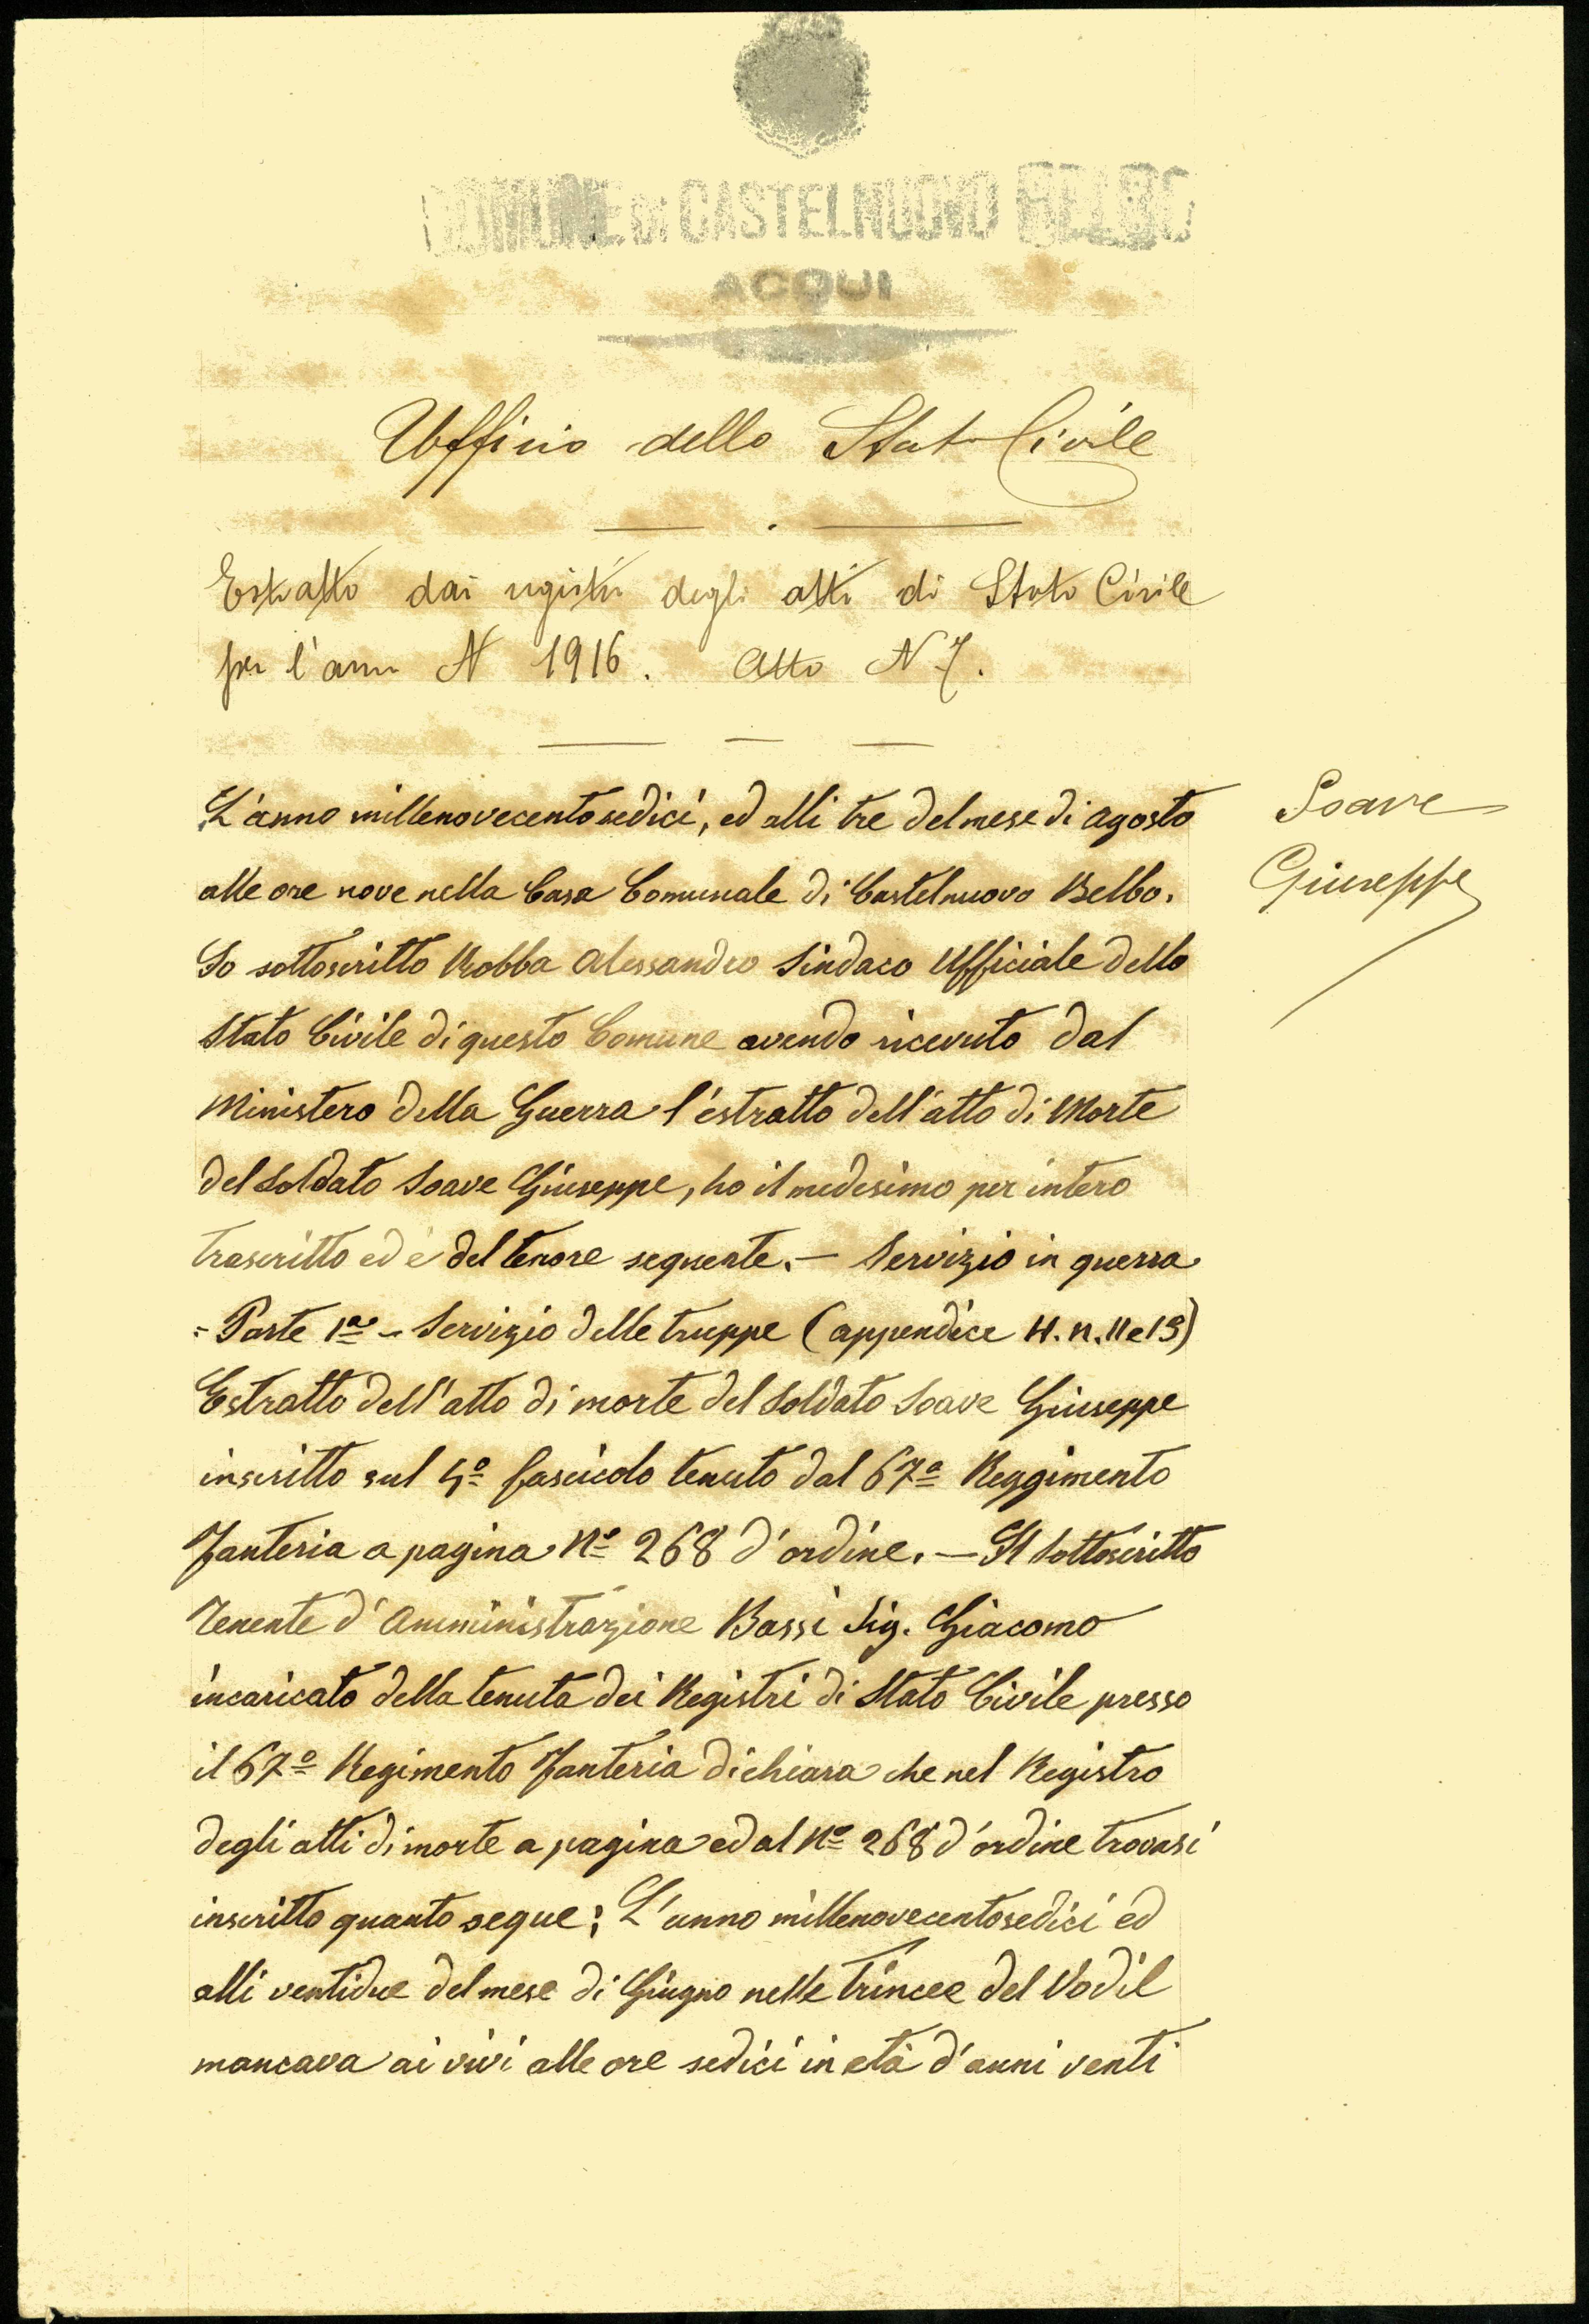 COMUNE DI CASTELNUOVO BELBO
ACQUI
Ufficio dello Stato Civile
Estratto dai registri degli atti di Stato Civile
per l'anno N 1916. Atto N 7.
L'anno millenovecentosedici, ed alli tre del mese di Agosto
alle ore nove nella Casa Comunale di Castelnuovo Belbo.
Io sottoscritto Robba Alessandro Sindaco Ufficiale dello
Stato Civile di questo Comune avendo ricevuto dal
Ministero della Guerra l'estratto dell'atto di Morte
del Soldato Soave Giuseppe, ho il medesimo per intero
trascritto ed è del tenore seguente. — Servizio in guerra
= Parte 1ª – Servizio delle truppe (appendice H. n. 11 e 13)
Estratto dell'atto di morte del Soldato Soave Giuseppe
inscritto sul 4º fascicolo tenuto dal 67º Reggimento
Fanteria a pagina Nº 268 d'ordine. — Il Sottoscritto
Tenente d'Amministrazione Bassi Sig. Giacomo
incaricato della tenuta dei Registri di Stato Civile presso
il 67º Regimento Fanteria dichiara che nel Registro
degli atti di morte a pagina ed al Nº 268 d'ordine trovasi
inscritto quanto segue: L'anno millenovecentosedici ed
alli ventidue del mese di Giugno nelle trincee del Vodil
mancava ai vivi alle ore sedici in età d'anni venti
Soave
Giuseppe